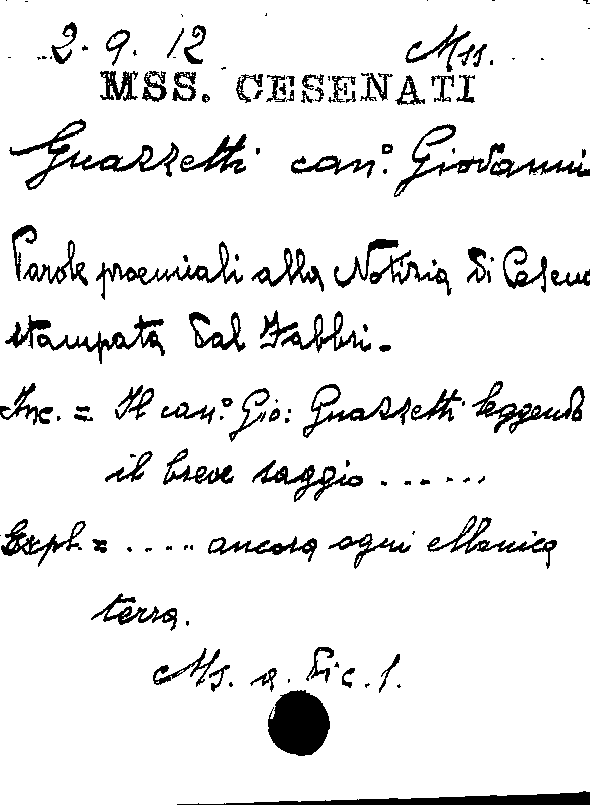 2. 9. 12 Mss.
MSS. CESENATI
Guazzetti can.° Giovanni
Parole proemiali alla Notizia di Cesena
stampata dal Fabbri.
Inc. = Il can.° Gio: Guazzetti leggendo
il breve saggio ......
Expl. = ..... ancora ogni
terra.
Ms. a. Sec.